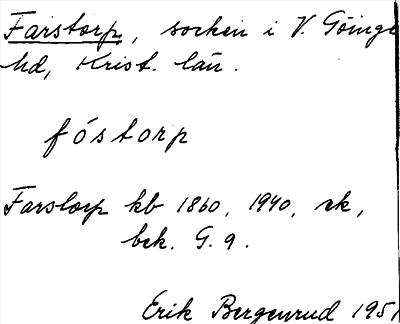 Farstorp, socken i V. Göinge
hd, Krist. län.
fóstorp
Farstorp kb 1860, 1940, ek,
bek. G. a.
Erik Bergenrud 1951